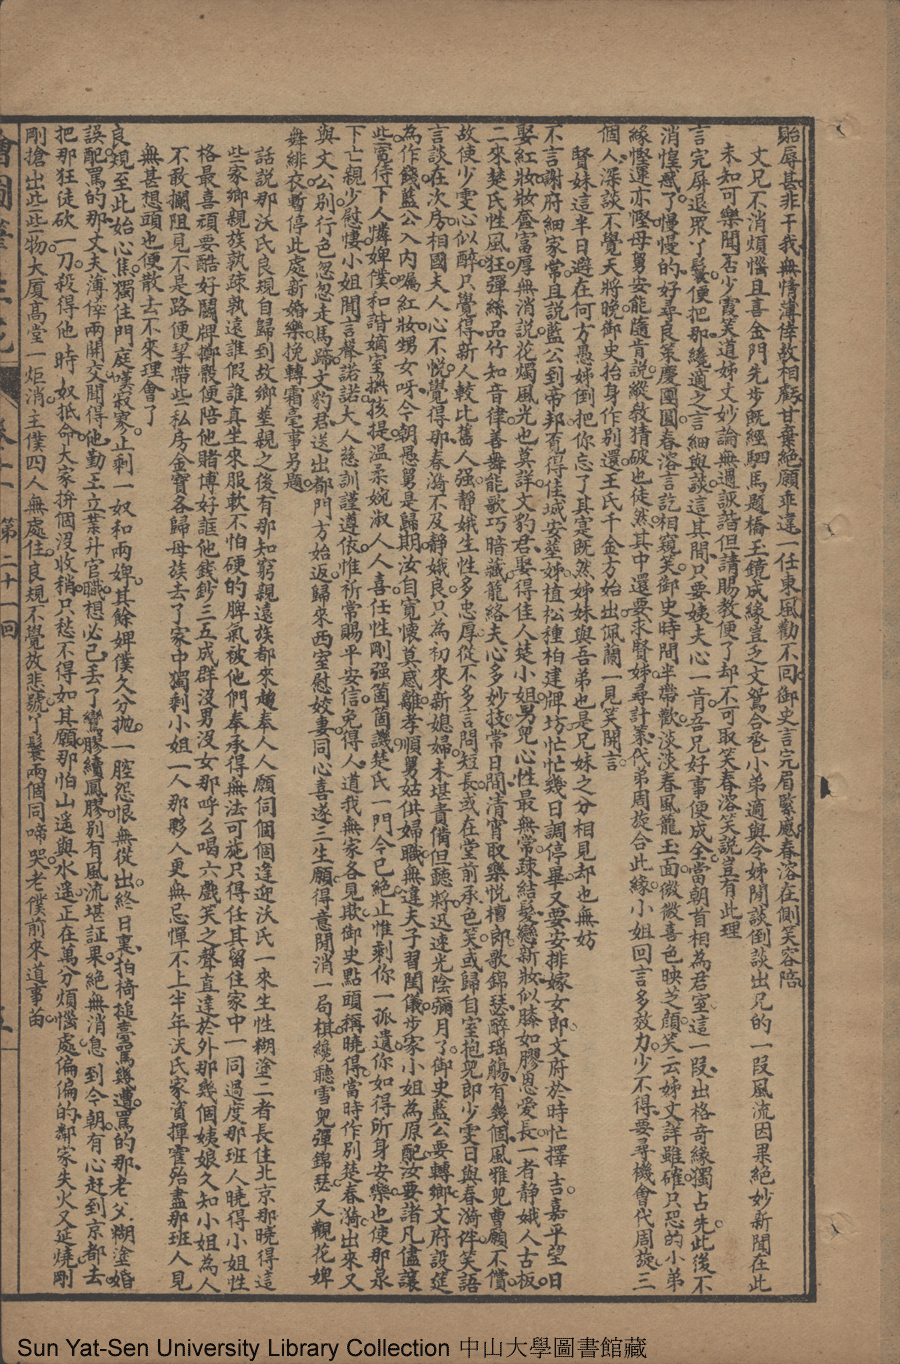 貽辱甚非干我無情薄倖敖相虧甘棄絕願乖違一任東風勸不回御史言完眉緊蹙春溶在側笑容陪
丈兄不消煩惱且喜金門先步既經駟馬題橋玉鏡成緣豈乏文鴛合卺小弟適與令姊閒談倒談出兄的一段風流因果絕妙新聞在此
未知可樂聞否少霞笑道姊丈妙論無遇詼諧但請賜教便了却不可取笑春溶笑說豈有此理
言完屏退眾丫鬟便把那繞適之言細與談這其間只要姨夫心一肯吾兄好事便成全當朝首相為君室這一段出格奇緣獨占先此後不
消惶惑了慢慢的好尋良策慶團圓春溶言訖相窺笑御史時間半帶歡淡淡春風籠玉面微微喜色映芝顏笑云姊丈詳雖確只恐的小弟
緣慳運亦慳母舅安能隨肯說縱教猜破也徒然其中還要求賢姊尋計策代弟周旋合此緣小姐回言多效力少不得要尋機會代周旋三
個人深談不覺天將晚御史抬身作別還王氏千金方始出佩蘭一見笑開言
賢妹這半日避在何方愚姊倒把你忘了其寔既然姊妹與吾弟也是兄妹之分相見却也無妨
不言謝府細家常且說藍公到帝邦覓得佳城安葬姊植松種柏建牌坊忙忙幾日調停畢又要安排嫁女郎文府於時忙擇吉嘉平望日
娶紅妝妝奩富厚無消說花燭風光也莫詳文豹君娶得佳人楚小姐男兒心性最無常疎結髮戀新妝似膝如膠恩愛長一者靜娥人古板
二來楚氏性風狂彈絲品竹知音律善舞能歌巧暗藏籠絡夫心多妙技常日間清宵取樂悅檀郎歌錦瑟醉瑤觴有幾個風雅兒曹願不償
故使少雯心似醉只覺得新人較比舊人强靜娥生性多忠厚從不多言問短長或在堂前承色笑或歸自室抱兒郎少雯日與春漪伴笑語
言談在次房相國夫人心不悅覺得那春漪不及靜娥良只為初來新媳婦未堪責備但聽將迅速光陰彌月了御史藍公要轉鄉文府設筵
為作餞藍公入內囑紅妝甥女呀今朝愚舅是歸期汝自寬懷莫慼離孝順舅姑供婦職無違夫子習閨儀步家小姐為原配汝要諸凡儘讓
些寬待下人憐婢僕和諧嫡室撫孩提溫柔婉淑人人喜任性剛强箇箇譏楚氏一門今已絕止惟剩你一孤遺你如得所身安樂也使那泉
下亡親少慰悽小姐聞言聲諾諾大人慈訓謹遵依惟祈常賜平安信免得人道我無家各見欺御史點頭稱曉得當時作別楚春漪出來又
與文公別行色怱怱走馬蹄文豹君送出都門方始返歸來西室慰姣妻同心喜遂三生願得意閒消一局棋纔聽雪兒彈錦瑟又觀花婢
舞緋衣暫停此處新婚樂挽轉霜毫事另題
話說那沃氏良規自歸到故鄉塟親之後有那知窮親遠族都來趨奉人人願伺個個逢迎沃氏一來生性糊塗二者長住北京那曉得這
些家鄉親族孰疎孰遠誰假誰真坐來服軟不怕硬的脾氣被他們奉承得無法可施只得任其留住家中一同過度那班人曉得小姐性
格最喜頑要酷好鬭牌擲骰便陪他賭博好誆他錢鈔三五成群沒男沒女那呼么喝六戲笑之聲直達於外那幾個姨娘久知小姐為人
不敢攔阻見不是路便挈帶些私房金寶各歸母族去了家中獨剩小姐一人那夥人更無忌憚不上半年沃氏家資揮霍殆盡那班人見
無甚想頭也便散去不來理會了
良規至此始心焦獨住門庭嘆寂寥止剩一奴和兩婢其餘婢僕久分拋一腔怨恨無從出終日裏拍椅搥臺罵幾遭罵的那老父糊塗婚
誤配罵的那丈夫薄倖兩開交聞得他勤王立業升官職想必已丟了鸞膠續鳳膠別有風流堪証果絕無消息到今朝有心赶到京都去
把那狂徒砍一刀殺得他時奴抵命大家拚個沒收稍只愁不得如其願那怕山遙與水遙正在萬分煩惱處偏偏的鄰家失火又延燒剛
剛搶出些些物大厦高堂一炬消主僕四人無處住良規不覺放悲號丫鬟兩個同啼哭老僕前來道事苗
第二十一回